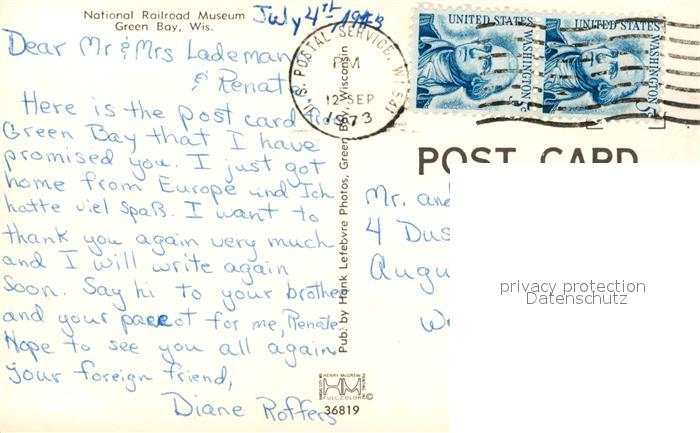 National Railroad Museum
Green Bay, Wis.
July 4th, 1973
Dear Mr & Mrs Lademan
& Renate
Here is the post card from
Green Bay that I have
promised you. I just got
home from Europe und Ich
hatte viel Spaß. I want to
thank you again very much
and I will write again
soon. Say hi to your brother
and your parrot for me, Renate.
Hope to see you all again
your foreign friend,
Diane Roffers
Pub. by Hank Lefebvre Photos, Green Bay, Wisconsin
HENRY McGREW
HM
FULL COLOR
36819
U.S. POSTAL SERVICE, WI 541
PM
12 SEP
1973
UNITED STATES
WASHINGTON
5c
UNITED STATES
WASHINGTON
POST CARD
Mr. and
4 Dus
Augu
We
privacy protection
Datenschutz